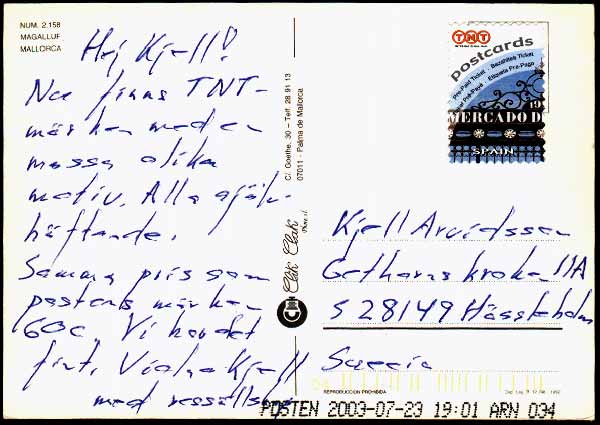 NUM. 2.158
MAGALLUF
MALLORCA
Hej Kjell!
Nu finns TNT-
märken med en
massa olika
motiv. Alla själv-
häftande.
Samma pris som
postens märken
60c. Vi har det
fint. Kjell
med ressällskap
C/. Goethe, 30 – Telf. 28 91 13
07011 - Palma de Mallorca
Clik Clak
TNT
postcards
Pre-Paid Ticket . Bezahltes Ticket
Pre-Payé . Etiqueta Pre-Pago
MERCADO D
SPAIN
Kjell Arvidsson
Gethorns krok 11A
S 28149 Hässleholm
Suecia
REPRODUCCION PROHIBIDA
POSTEN 2003-07-23 19:01 ARN 034